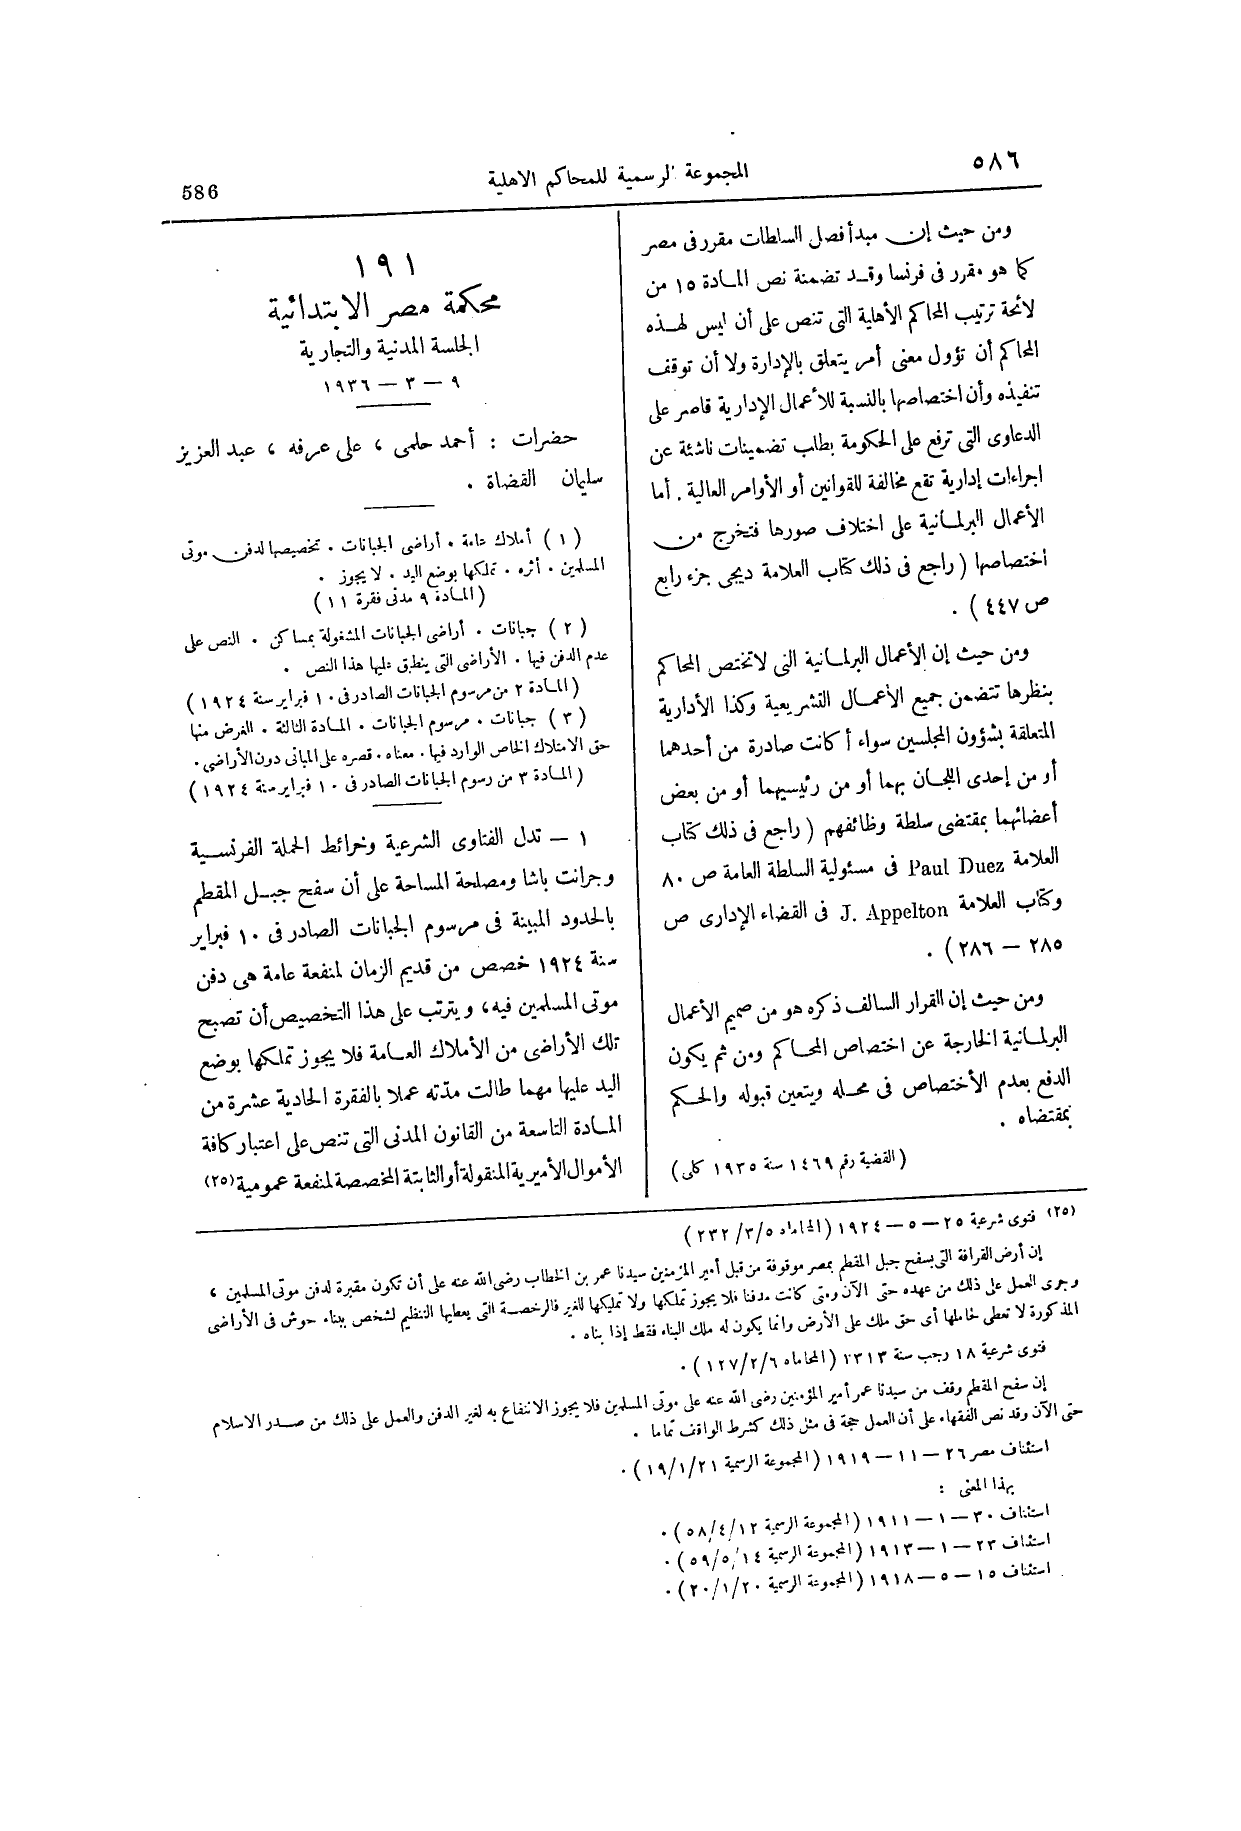 ٥٨٦
المجموعة الرسمية للمحاكم الاهلية
586
ومن حيث إن مبدأ فصل السلطات مقرر فى مصر
كما هو مقرر فى فرنسا وقد تضمنة نص المادة ١٥ من
لائحة ترتيب المحاكم الأهلية التى تنص على أن ليس لهذه
المحاكم أن تؤول معنى أمر يتعلق بالإدارة ولا أن توقف
تنفيذه وأن اختصاصها بالنسبة للأعمال الإدارية قاصر على
الدعاوى التى ترفع على الحكومة بطلب تضمينات ناشئة عن
اجراءات إدارية تقع مخالفة للقوانين أو الأوامر العالية . أما
الأعمال البرلمانية على اختلاف صورها فتخرج من
اختصاصها ( راجع فى ذلك كتاب العلامة ديجى جزء رابع
ص ٤٤٧ ) .
ومن حيث إن الأعمال البرلمانية التى لا تختص المحاكم
بنظرها تتضمن جميع الأعمال التشريعية وكذا الأدارية
المتعلقة بشؤون المجلسين سواء أكانت صادرة من أحدهما
أو من إحدى اللجان بهما أو من رئيسيهما أو من بعض
أعضائهما بمقتضى سلطة وظائفهم ( راجع فى ذلك كتاب
العلامة Paul Duez فى مسئولية السلطة العامة ص ٨٠
وكتاب العلامة J. Appelton فى القضاء الإدارى ص
٢٨٥ — ٢٨٦ ) .
ومن حيث إن القرار السالف ذكره هو من صميم الأعمال
البرلمانية الخارجة عن اختصاص المحاكم ومن ثم يكون
الدفع بعدم الأختصاص فى محله ويتعين قبوله والحكم
بمقتضاه .
( القضية رقم ١٤٦٩ سنة ١٩٣٥ كلى )
١٩١
محكمة مصر الابتدائية
الجلسة المدنية والتجارية
٩ — ٣ — ١٩٣٦
حضرات : أحمد حلمى ، على عرفه ، عبد العزيز
سليمان القضاة .
( ١ ) أملاك عامة . أراضى الجبانات . تخصيصها لدفن موتى
المسلمين . أثره . تملكها بوضع اليد . لا يجوز .
( المادة ٩ مدنى فقرة ١١ )
( ٢ ) جبانات . أراضى الجبانات المشغولة بمساكن . النص على
عدم الدفن فيها . الأراضى التى ينطبق عليها هذا النص .
( المادة ٢ من مرسوم الجبانات الصادر فى ١٠ فبراير سنة ١٩٢٤ )
( ٣ ) جبانات . مرسوم الجبانات . المادة الثالثة . الغرض منها
حق الامتلاك الخاص الوارد فيها . معناه . قصره على المبانى دون الأراضى .
( المادة ٣ من رسوم الجبانات الصادر فى ١٠ فبراير سنة ١٩٢٤ )
١ — تدل الفتاوى الشرعية وخرائط الحملة الفرنسية
وجرانت باشا ومصلحة المساحة على أن سفح جبل المقطم
بالحدود المبينة فى مرسوم الجبانات الصادر فى ١٠ فبراير
سنة ١٩٢٤ خصص من قديم الزمان لمنفعة عامة هى دفن
موتى المسلمين فيه ، ويترتب على هذا التخصيص أن تصبح
تلك الأراضى من الأملاك العامة فلا يجوز تملكها بوضع
اليد عليها مهما طالت مدّته عملا بالفقرة الحادية عشرة من
المادة التاسعة من القانون المدنى التى تنص على اعتبار كافة
الأموال الأميرية المنقولة أو الثابتة المخصصة لمنفعة عمومية (٢٥)
(٢٥) فتوى شرعية ٢٥ — ٥ — ١٩٢٤ ( المحاماه ٢٣٢/٣/٥ )
إن أرض القرافة التى بسفح جبل المقطم بمصر موقوفة من قبل أمير المؤمنين سيدنا عمر بن الخطاب رضى الله عنه على أن تكون مقبرة لدفن موتى المسلمين ،
وجرى العمل على ذلك من عهده حتى الآن ومتى كانت مدفنا فلا يجوز تملكها ولا تمليكها للغير فالرخصة التى يعطيها التنظيم لشخص ببناء حوش فى الأراضى
المذكورة لا تعطى لحاملها أى حق ملك على الأرض وانما يكون له ملك البناء فقط إذا بناه .
فتوى شرعية ١٨ رجب سنة ١٣١٣ ( المحاماه ١٢٧/٢/٦ ) .
إن سفح المقطم وقف من سيدنا عمر أمير المؤمنين رضى الله عنه على موتى المسلمين فلا يجوز الانتفاع به لغير الدفن والعمل على ذلك من صدر الاسلام
حتى الآن وقد نص الفقهاء على أن العمل حجة فى مثل ذلك كشرط الواقف تماما .
استئناف مصر ٢٦ — ١١ — ١٩١٩ ( المجموعة الرسمية ١٩/١/٢١ ) .
بهذا المعنى :
استئناف ٣٠ — ١ — ١٩١١ ( المجموعة الرسمية ٥٨/٤/١٢ ) .
استئناف ٢٣ — ١ — ١٩١٣ ( المجموعة الرسمية ٥٩/٥/١٤ ) .
استئناف ١٥ — ٥ — ١٩١٨ ( المجموعة الرسمية ٢٠/١/٢٠ ) .